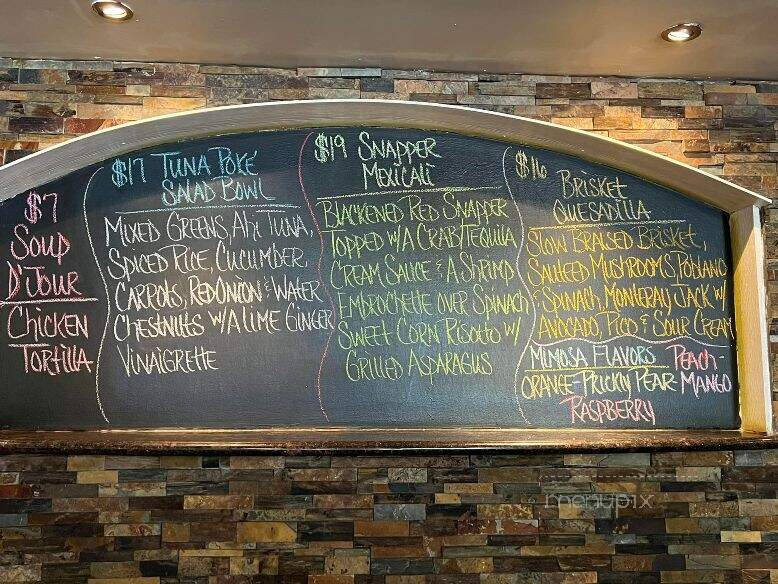 $7
Soup
D'Jour
Chicken
Tortilla
$17 Tuna Poke
Salad Bowl
Mixed Greens, Ahi Tuna,
Spiced Rice, Cucumber,
Carrots, Red Onion & Water
Chestnuts w/ A Lime Ginger
Vinaigrette
$19 Snapper
Mexicali
Blackened Red Snapper
Topped w/ A Crab/Tequila
Cream Sauce & A Shrimp
Embrochette over Spinach
Sweet Corn Risotto w/
Grilled Asparagus
$16 Brisket
Quesadilla
Slow Braised Brisket,
Sauteed Mushrooms, Poblano
& Spinach, Monteray Jack w/
Avocado, Pico & Sour Cream
Mimosa Flavors Peach-
Orange-Prickly Pear-Mango
Raspberry
menupix